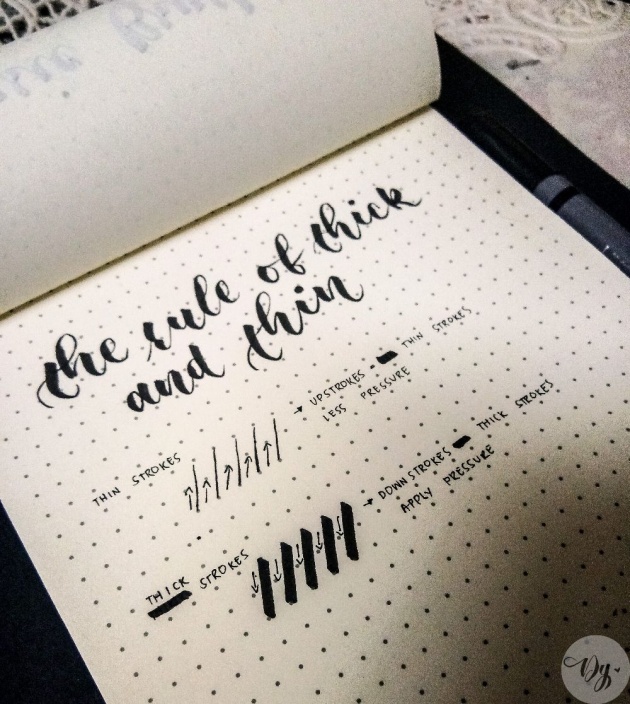 the rule of thick
and thin
THIN STROKES
→ UPSTROKES - THIN STROKES
LESS PRESSURE
THICK STROKES
→ DOWNSTROKES THICK STROKES
APPLY PRESSURE
Dy.